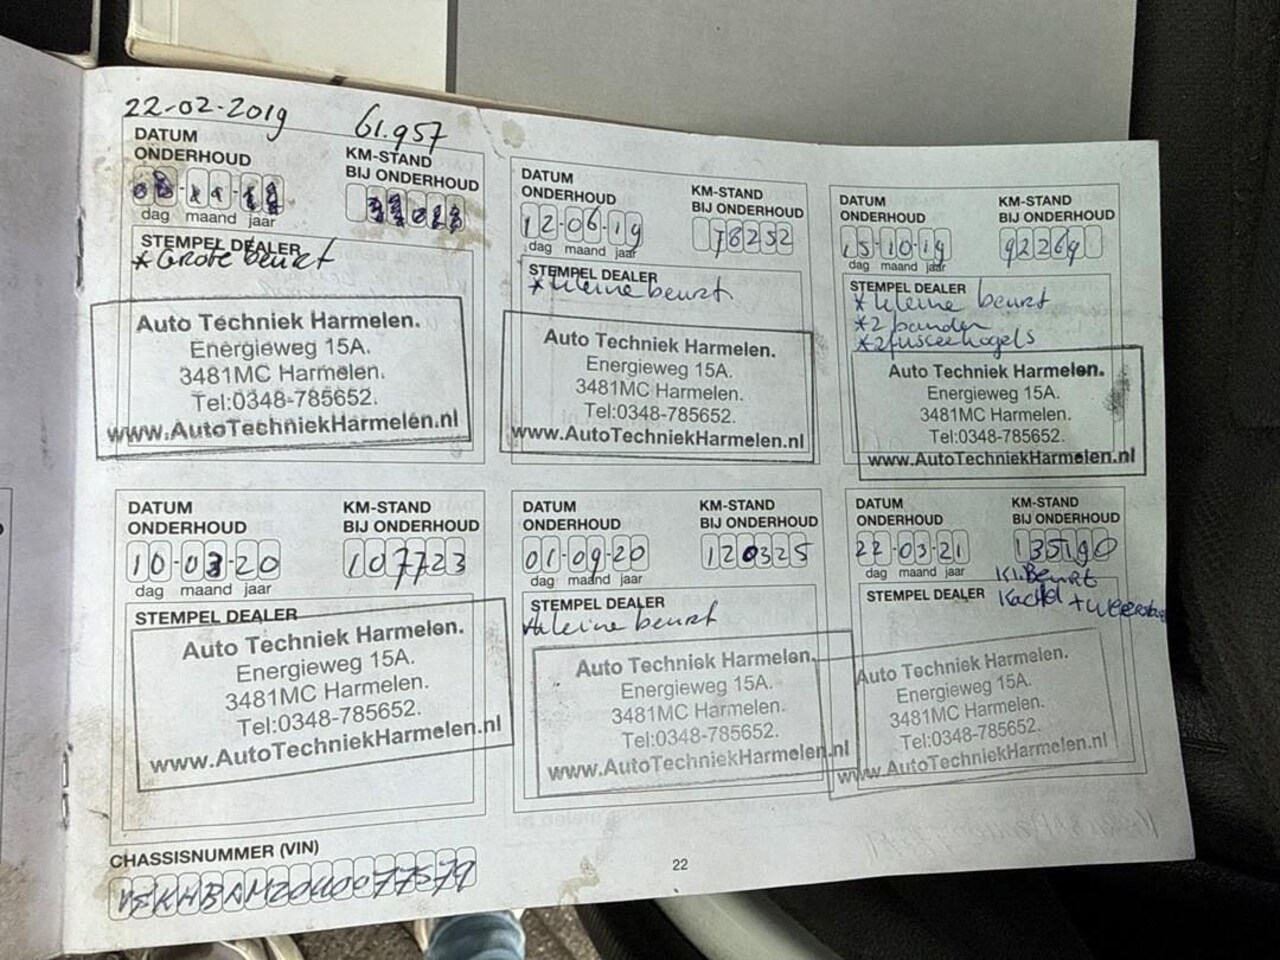 22-02-2019 61.957
DATUM
ONDERHOUD
KM-STAND
BIJ ONDERHOUD
dag maand jaar
STEMPEL DEALER
* Grote beurt
Auto Techniek Harmelen.
Energieweg 15A.
3481MC Harmelen.
Tel:0348-785652.
www.AutoTechniekHarmelen.nl
DATUM
ONDERHOUD
KM-STAND
BIJ ONDERHOUD
12-06-19 78252
dag maand jaar
STEMPEL DEALER
* kleine beurt
Auto Techniek Harmelen.
Energieweg 15A.
3481MC Harmelen.
Tel:0348-785652.
www.AutoTechniekHarmelen.nl
DATUM
ONDERHOUD
KM-STAND
BIJ ONDERHOUD
15-10-19 92269
dag maand jaar
STEMPEL DEALER
* kleine beurt
* 2 banden
* 2 fuseekogels
Auto Techniek Harmelen.
Energieweg 15A.
3481MC Harmelen.
Tel:0348-785652.
www.AutoTechniekHarmelen.nl
DATUM
ONDERHOUD
KM-STAND
BIJ ONDERHOUD
10-03-20 107723
dag maand jaar
STEMPEL DEALER
Auto Techniek Harmelen.
Energieweg 15A.
3481MC Harmelen.
Tel:0348-785652.
www.AutoTechniekHarmelen.nl
DATUM
ONDERHOUD
KM-STAND
BIJ ONDERHOUD
01-09-20 120325
dag maand jaar
STEMPEL DEALER
kleine beurt
Auto Techniek Harmelen.
Energieweg 15A.
3481MC Harmelen.
Tel:0348-785652.
www.AutoTechniekHarmelen.nl
DATUM
ONDERHOUD
KM-STAND
BIJ ONDERHOUD
22-03-21 135190
dag maand jaar
Kl. Beurt
STEMPEL DEALER
Kachel +
Auto Techniek Harmelen.
Energieweg 15A.
3481MC Harmelen.
Tel:0348-785652.
www.AutoTechniekHarmelen.nl
CHASSISNUMMER (VIN)
22